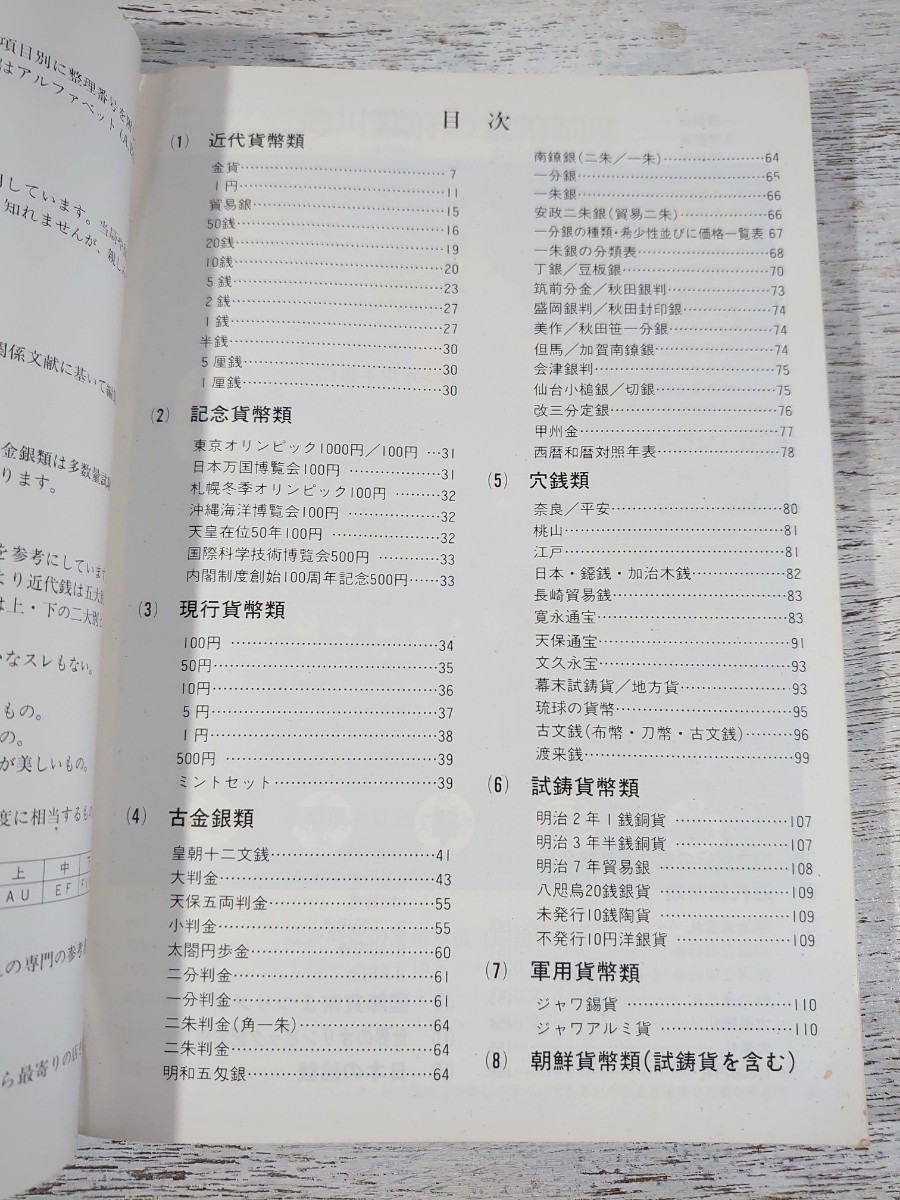 項目別に整理番号を
はアルファベット(A
しています。当局や
知れませんが、親し
関係文献に基いて編
金銀類は多数量
ります。
を参考にしています
より近代銭は五大
は上・下の二大
なスレもない。
もの。
の。
が美しいもの。
度に相当するもの
上 中 下
AU EF F
の専門の参考
ら最寄りの店
目次
(1) 近代貨幣類
金貨…………7
1円…………11
貿易銀…………15
50銭…………16
20銭…………19
10銭…………20
5銭…………23
2銭…………27
1銭…………27
半銭…………30
5厘銭…………30
1厘銭…………30
(2) 記念貨幣類
東京オリンピック1000円/100円…31
日本万国博覧会100円…………31
札幌冬季オリンピック100円………32
沖縄海洋博覧会100円…………32
天皇在位50年100円…………32
国際科学技術博覧会500円………33
内閣制度創始100周年記念500円……33
(3) 現行貨幣類
100円…………34
50円…………35
10円…………36
5円…………37
1円…………38
500円…………39
ミントセット…………39
(4) 古金銀類
皇朝十二文銭…………41
大判金…………43
天保五両判金…………55
小判金…………55
太閤円歩金…………60
二分判金…………61
一分判金…………61
二朱判金(角一朱)…………64
二朱判金…………64
明和五匁銀…………64
南鐐銀(二朱/一朱)…………64
一分銀…………65
一朱銀…………66
安政二朱銀(貿易二朱)…………66
一分銀の種類・希少性並びに価格一覧表 67
一朱銀の分類表…………68
丁銀/豆板銀…………70
筑前分金/秋田銀判…………73
盛岡銀判/秋田封印銀…………74
美作/秋田笹一分銀…………74
但馬/加賀南鐐銀…………74
会津銀判…………75
仙台小槌銀/切銀…………75
改三分定銀…………76
甲州金…………77
西暦和暦対照年表…………78
(5) 穴銭類
奈良/平安…………80
桃山…………81
江戸…………81
日本・鐚銭・加治木銭…………82
長崎貿易銭…………83
寛永通宝…………83
天保通宝…………91
文久永宝…………93
幕末試鋳貨/地方貨…………93
琉球の貨幣…………95
古文銭(布幣・刀幣・古文銭)………96
渡来銭…………99
(6) 試鋳貨幣類
明治2年1銭銅貨…………107
明治3年半銭銅貨…………107
明治7年貿易銀…………108
八咫烏20銭銀貨…………109
未発行10銭陶貨…………109
不発行10円洋銀貨…………109
(7) 軍用貨幣類
ジャワ錫貨…………110
ジャワアルミ貨…………110
(8) 朝鮮貨幣類(試鋳貨を含む)